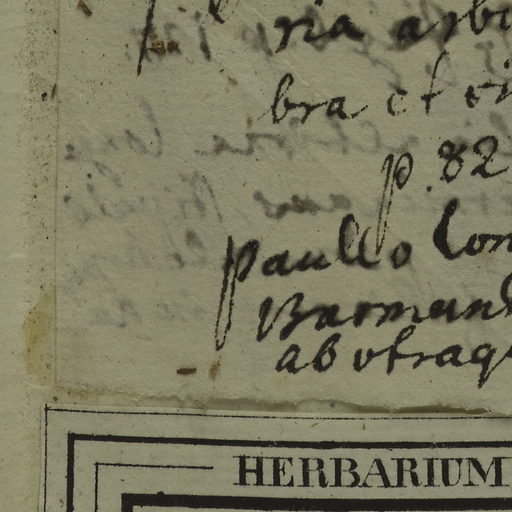 ria arbo
bra et vi
p. 82
paullo lon
Burmann
ab utraq
HERBARIUM